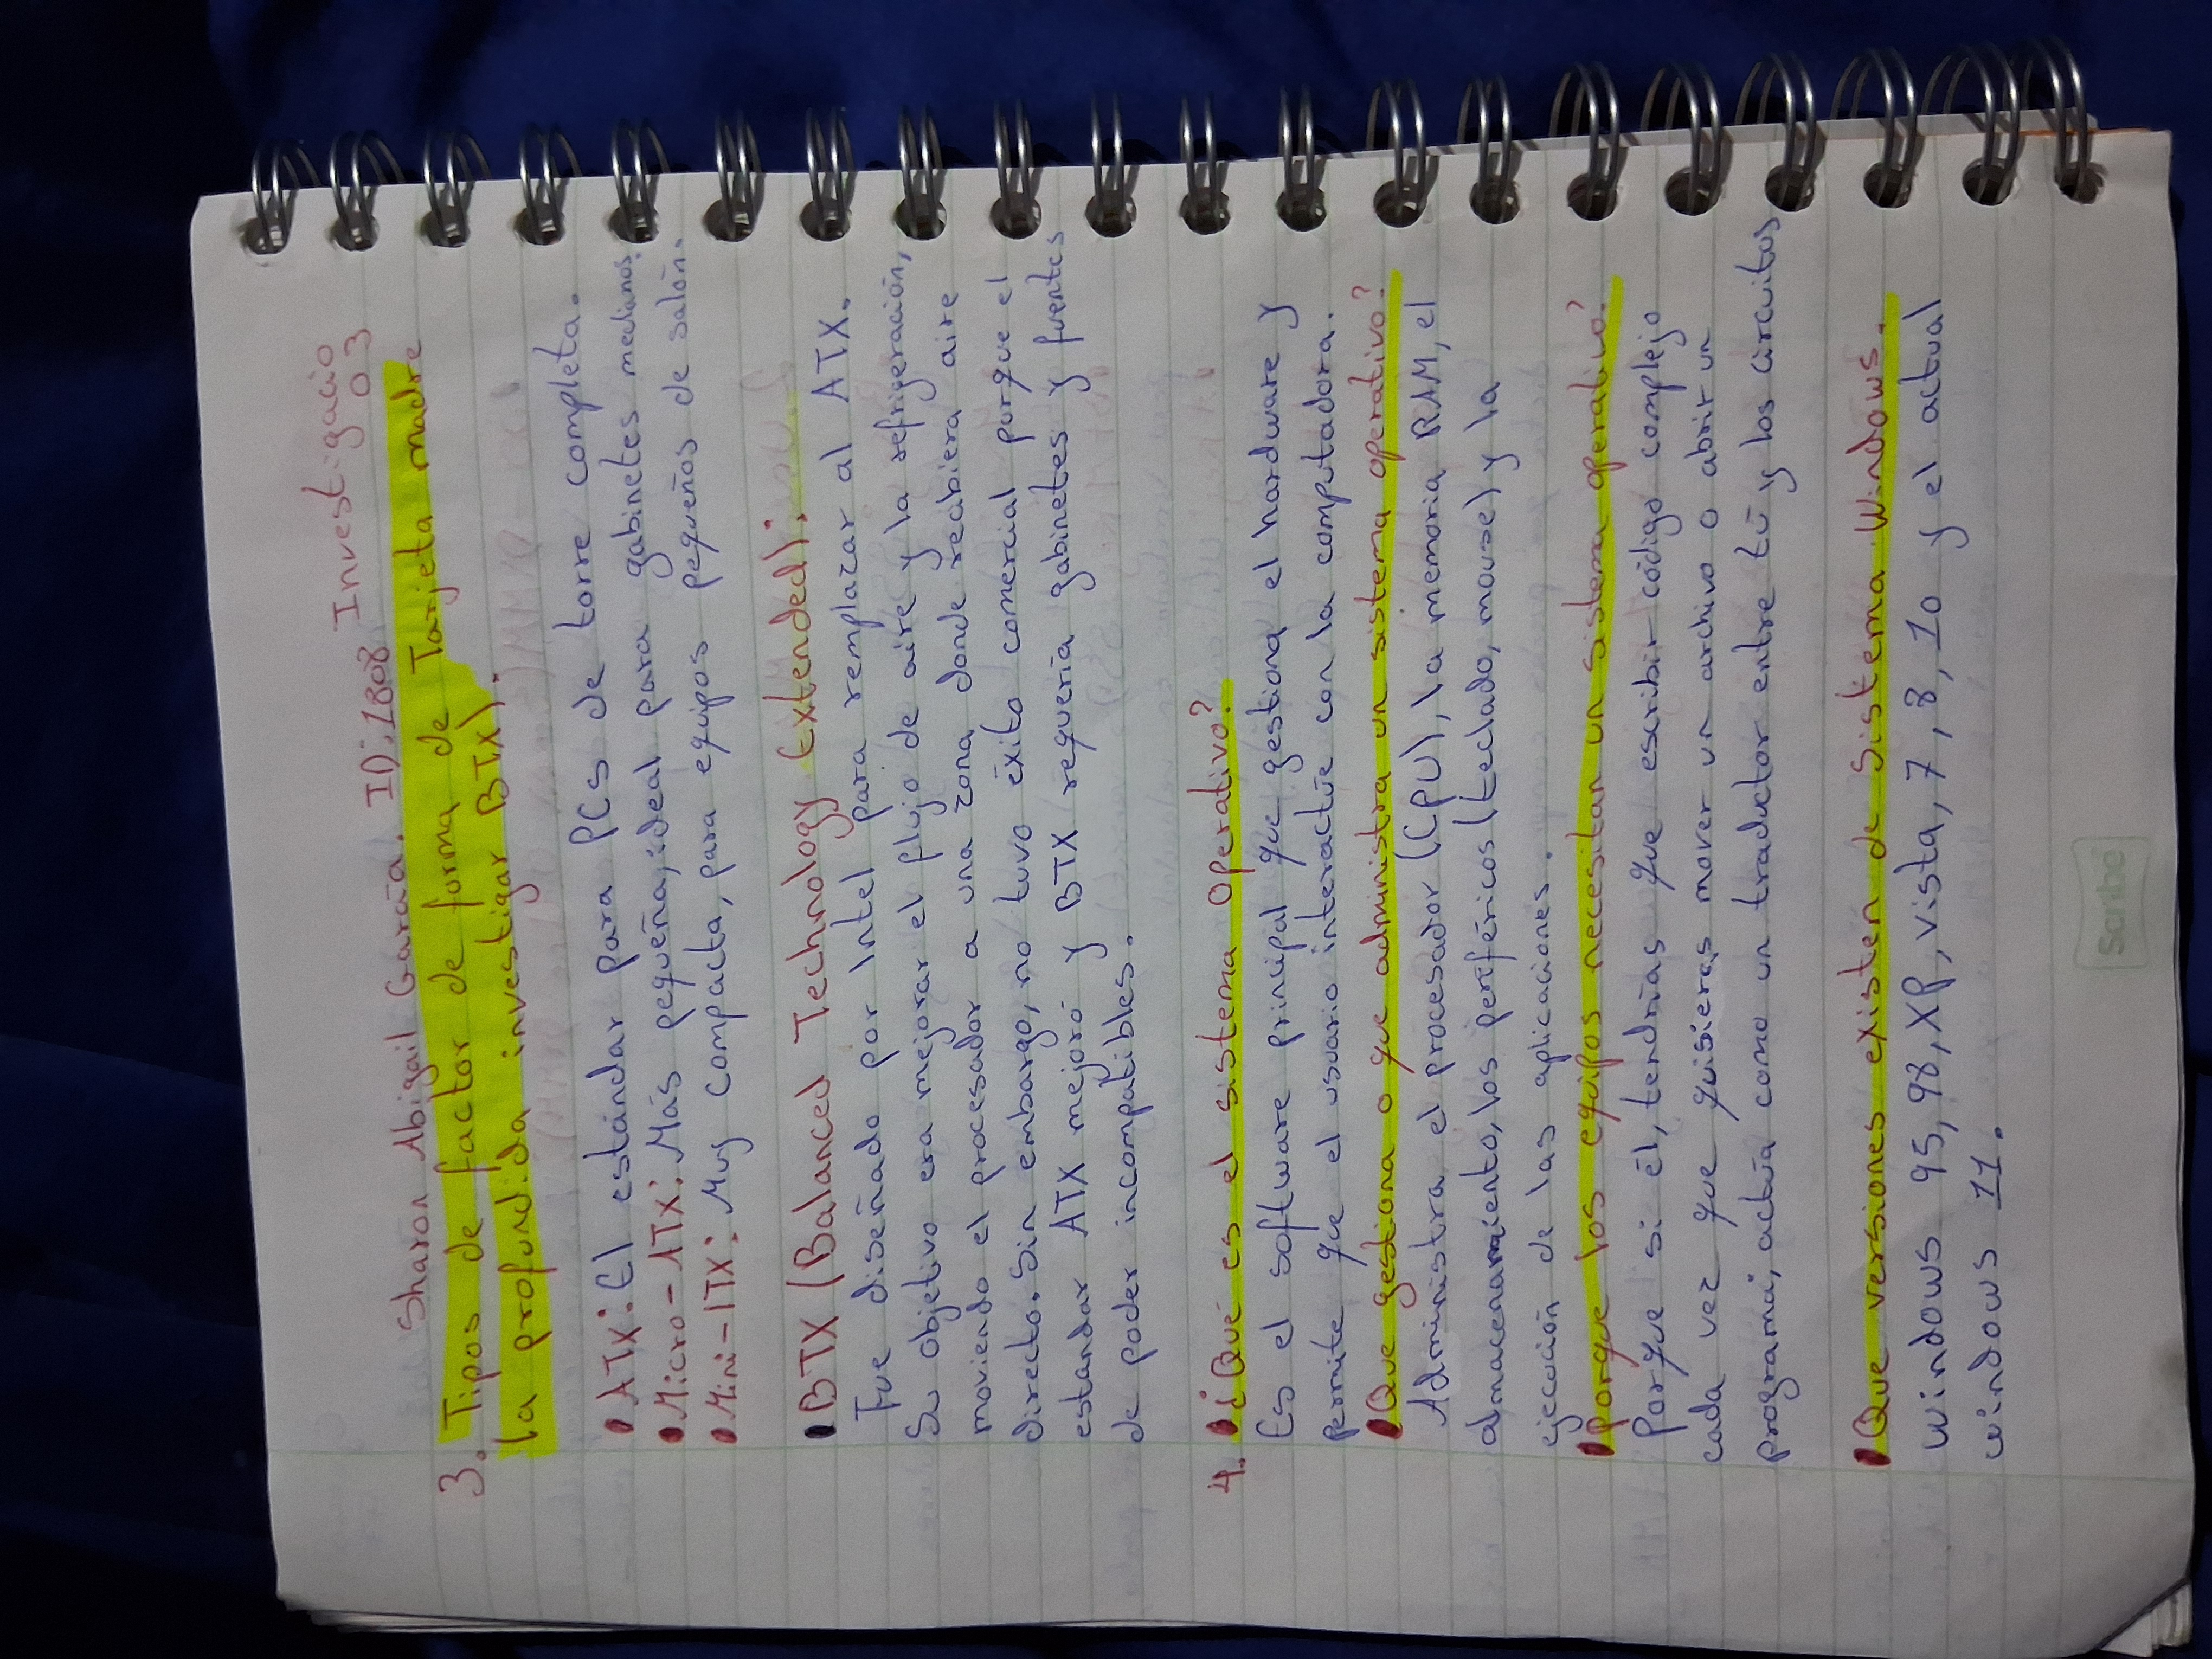 Investigacio
03
Sharon Abigail García. ID:1808
3. Tipos de factor de forma de Tarjeta madre
la profundida investigar BTX).
• ATX: El estándar para PCs de torre completa.
• Micro-ATX: Más pequeña, ideal para gabinetes medianos.
• Mini-ITX: Muy compacta, para equipos pequeños de salón.
• BTX (Balanced Technology Extended):
Fue diseñado por Intel para remplazar al ATX.
Su objetivo era mejorar el flujo de aire y la refrigeración,
moviendo el procesador a una zona donde recibiera aire
directo. Sin embargo, no tuvo éxito comercial porque el
estandar ATX mejoró y BTX requería gabinetes y fuentes
de poder incompatibles.
4. • ¿Qué es el sistema operativo?
Es el software principal que gestiona el hardware y
permite que el usuario interactúe con la computadora.
• Que gestiona o que administra un sistema operativo?
Administra el procesador (CPU), la memoria RAM, el
almacenamiento, los periféricos (teclado, mouse) y la
ejecución de las aplicaciones.
• porque los equipos necesitan un sistema operativo?
Porque si él, tendrías que escribir código complejo
cada vez que quisieras mover un archivo o abrir un
programa, actúa como un traductor entre tú y los circuitos
• Que versiones existen de sistema Windows.
windows 95, 98, XP, vista, 7, 8, 10 y el actual
windows 11.
Scribe